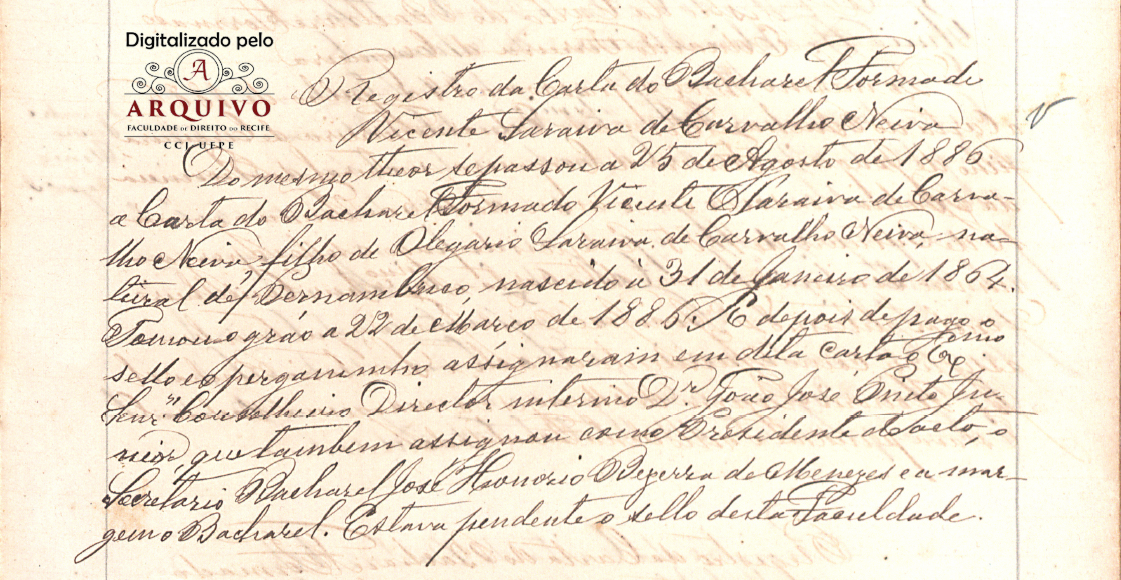 Digitalizado pelo
A
ARQUIVO
FACULDADE DE DIREITO DO RECIFE
CCJ UFPE
Registro da Carta do Bacharel Formado
Vicente Saraiva de Carvalho Neiva
Do mesmo theor se passou a 25 de Agosto de 1886
a Carta do Bacharel Formado Vicente Saraiva de Carva-
lho Neiva, filho de Olegario Saraiva de Carvalho Neiva, na-
tural de Pernambuco, nascido à 31 de Janeiro de 1864.
Tomou o gráo a 22 de Março de 1886. E depois de pago o
sello e o pergaminho assignaram em dita carta o Exmo
Senr. Conselheiro Director interino Dr. João José Pinto Ju-
nior, que tambem assignou como Presidente do acto, o
Secretario Bacharel José Honorio Bezerra de Menezes e a mar-
gem o Bacharel. Estava pendente o sello desta Faculdade.